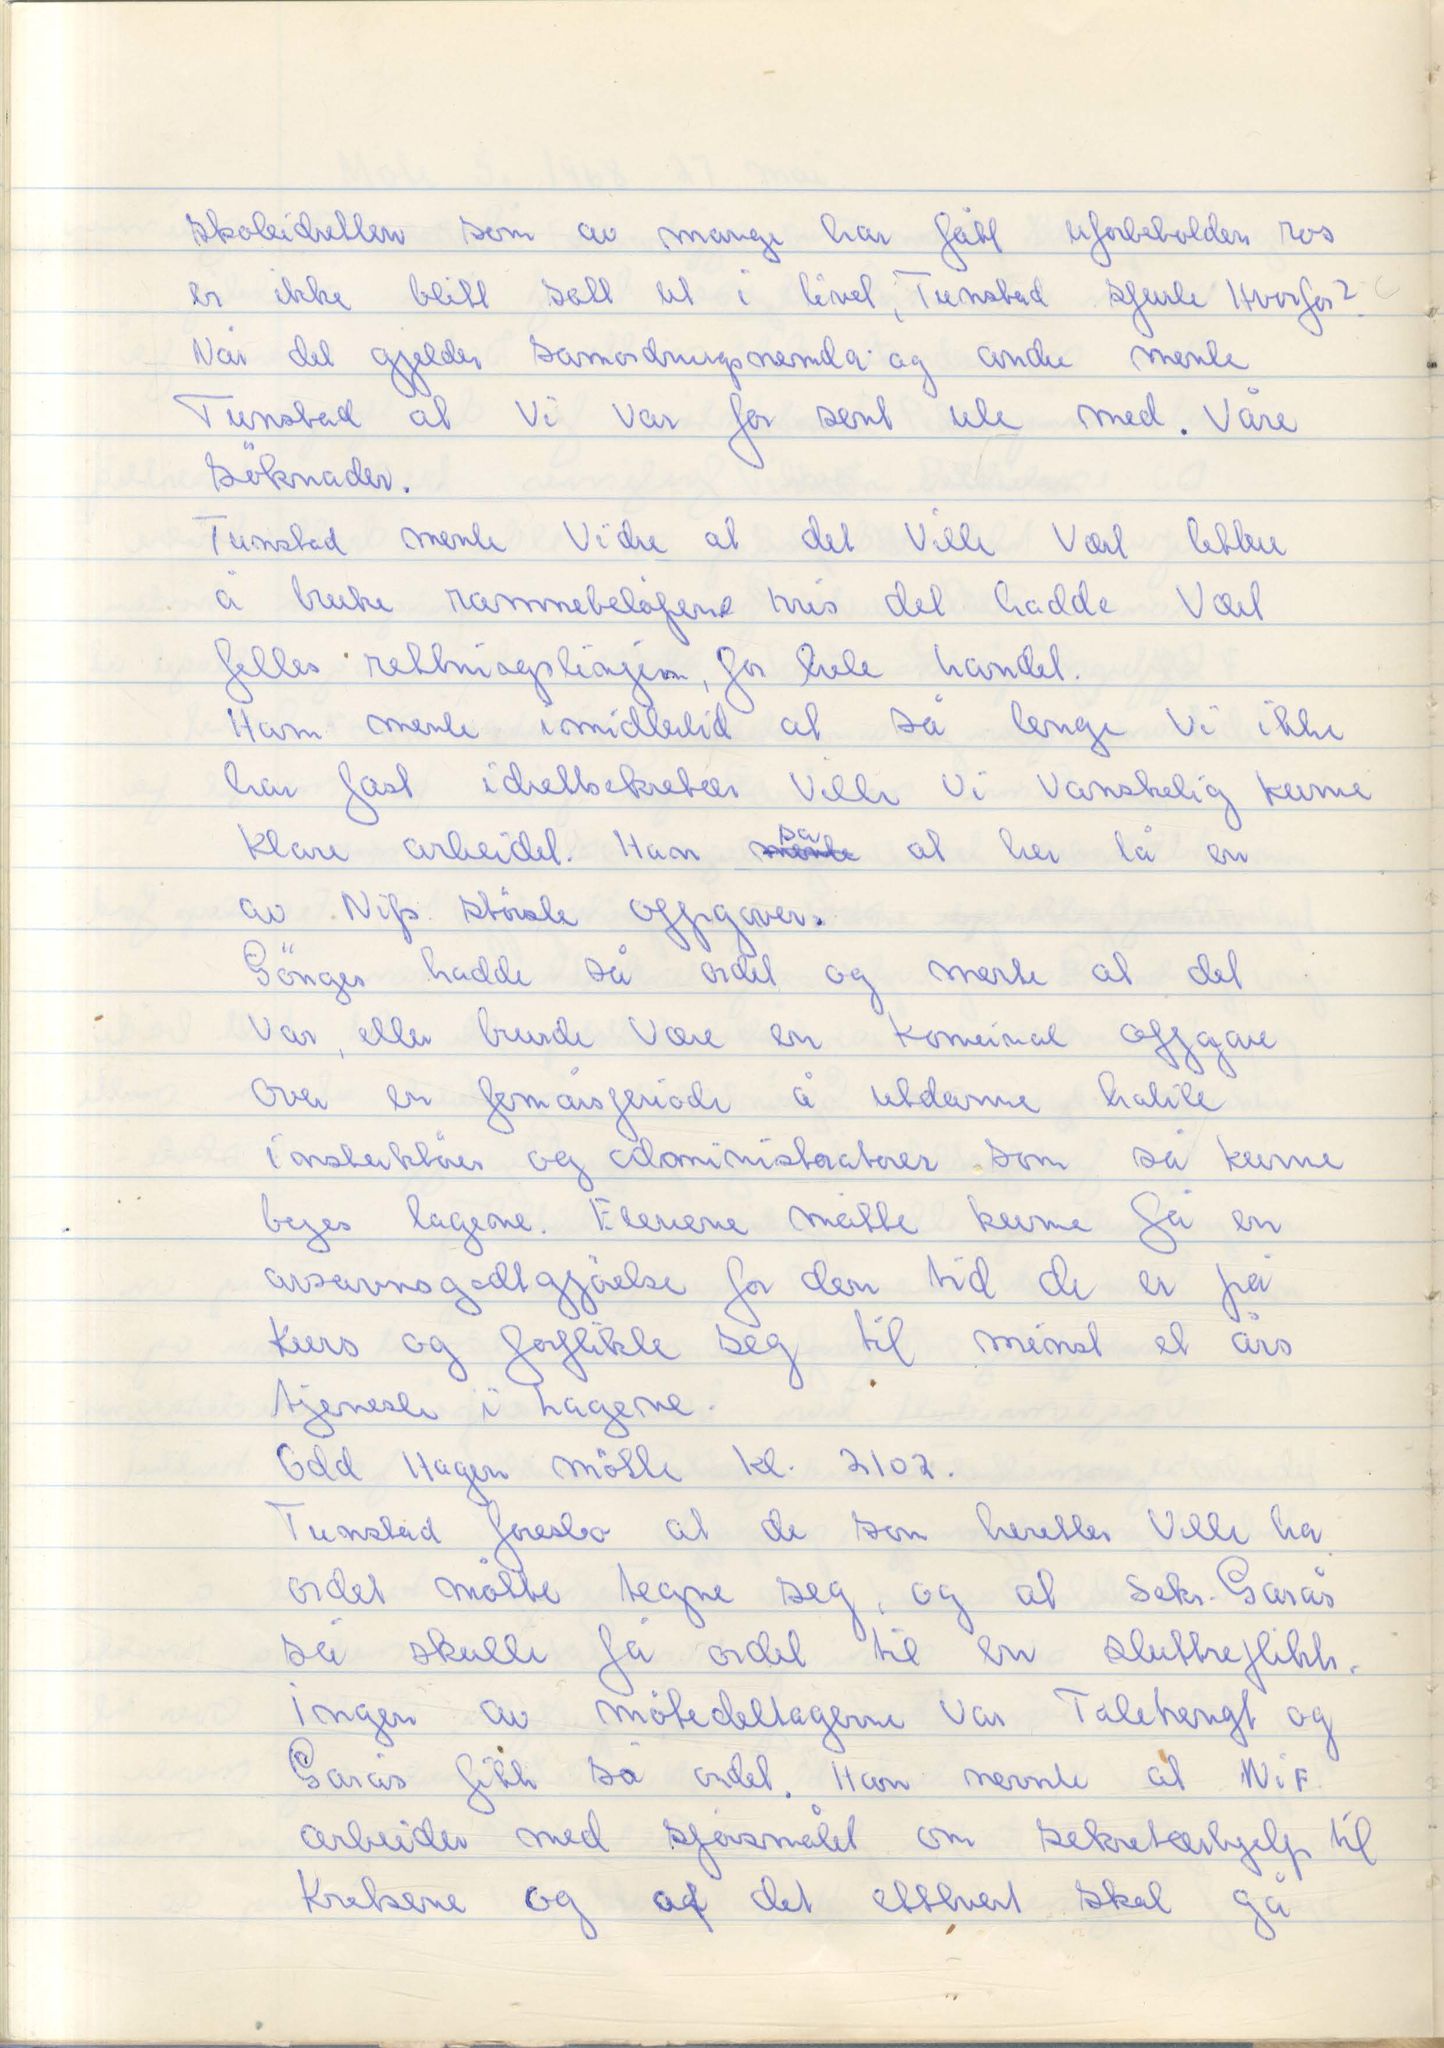 skoleidretten som av mange har fått uforbeholden ros
er ikke blitt satt ut i livet, Tunstad spurte Hvorfor?
Når det gjelder Samordningsnemda og andre mente
Tunstad at Vi var for sent ute med. Våre
Söknader.
Tunstad mente Vidre at det Ville Vært lettere
å bruke rammebelöpene hvis det hadde Vært
felles retningslinjer, for hele landet.
Han mente imidlertid at så lenge Vi ikke
har fast idrettsekretær Ville Vi Vanskelig kunne
klare arbeidet. Han mente sa at her lå en
av Nifs störste oppgaver.
Gönges hadde så ordet og mente at det
var, eller burde være en Komunal oppgave
over en femårsperiode å utdanne habile
instuktörer og administratorer som så kunne
lagene. Elevene måtte kunne få en
godtgjörelse for den tid de er på
Kurs og forplikte seg til minst et års
tjeneste i Lagene.
Odd Hagen mötte kl. 2102.
Tunstad foreslo at de som heretter Ville ha
ordet måtte tegne seg, og at Sekr. Garås
så skulle få ordet til en sluttreplikk.
Ingen av mötedeltagerne var Taletrengt og
Garås fikk så ordet. Han nevnte at NiF
arbeider med spörsmålet om sekretærhjelp til
Kretsene og at det etthvert skal gå